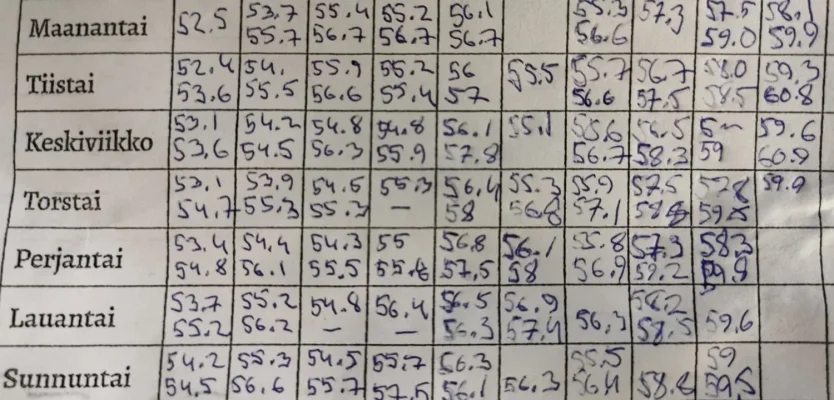 Maanantai 52.5 53.7 55.4 55.2 56.1 55.3 57.3 57.5 58.1
55.7 56.7 56.7 56.7 56.6 59.0 59.9
Tiistai 52.4 54. 55.9 55.2 56 55.5 55.7 56.7 58.0 59.3
53.6 55.5 56.6 55.4 57 56.6 57.5 58.5 60.8
Keskiviikko 53.1 54.2 54.8 54.8 56.1 55.1 55.6 56.5 59.6
53,6 54.5 56.3 55.9 57.8 56.7 58.3 59 60.9
Torstai 53.1 53.9 54.5 55.3 56.4 55.3 55.9 57.5 59.9
54.7 55.3 55.3 — 58 56.8 57.1
Perjantai 53.4 54.4 54.3 55 56.8 56.1 55.8 57.3 58.3
54.8 56.1 55.5 57,5 58 56.9 59.2 59.9
Lauantai 53.7 55.2 54.8 56.4 56.5 56.9 56,3 58.2 59,6
55.2 56.2 — — 56.3 57.4 58.5
Sunnuntai 54.2 55.3 54.5 55.7 56.3 56.3 55.5 58.8 59
54.5 56.6 55.7 57.5 56.1 56.4 59.5